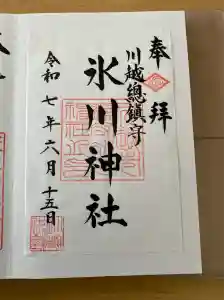 奉拝
川越總鎮守
氷川神社
令和七年六月十五日